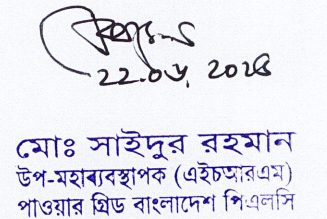 22.০৮, 2০২৪
মোঃ সাইদুর রহমান
উপ-মহাব্যবস্থাপক (এইচআরএম)
পাওয়ার গ্রিড বাংলাদেশ পিএলসি